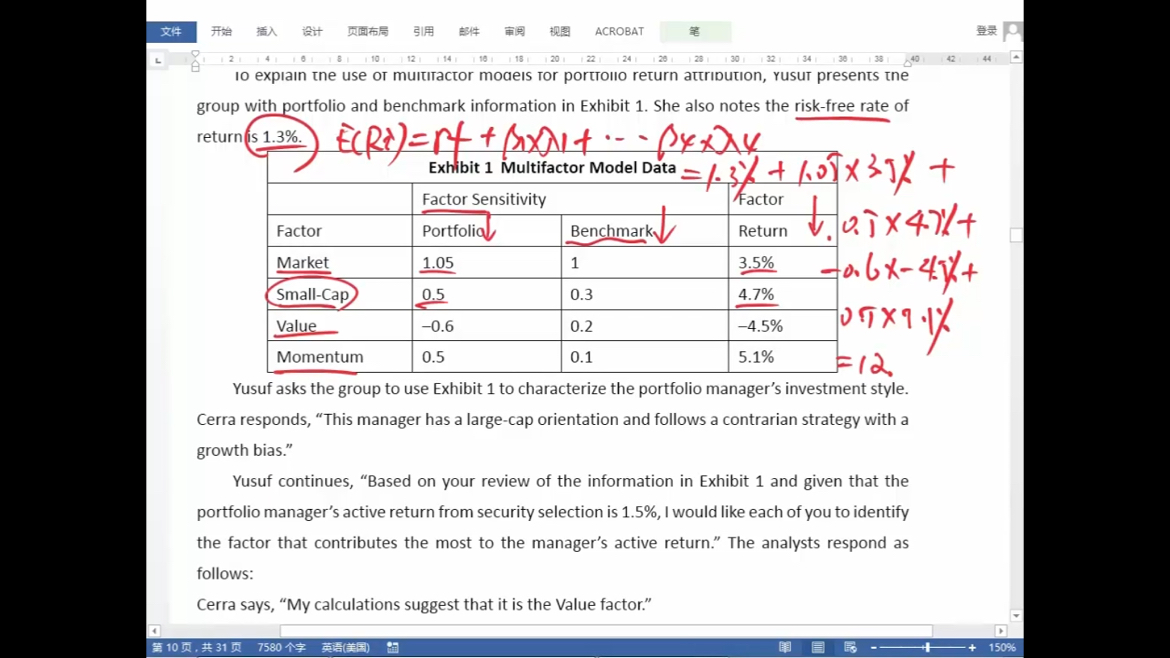 文件 开始 插入 设计 页面布局 引用 邮件 审阅 视图 ACROBAT 笔 登录
2 4 6 8 10 12 14 16 18 20 22 24 26 28 30 32 34 36 38 40 42 44
To explain the use of multifactor models for portfolio return attribution, Yusuf presents the
group with portfolio and benchmark information in Exhibit 1. She also notes the risk-free rate of
return is 1.3%. E(Ri)=rf+β1×λ1+⋯β4×λ4
Exhibit 1 Multifactor Model Data =1.3%+1.05×3.5%+
Factor Sensitivity Factor
Factor Portfolio Benchmark Return 0.5×4.7%+
Market 1.05 1 3.5% -0.6×-4.5%+
Small-Cap 0.5 0.3 4.7%
Value –0.6 0.2 –4.5%
Momentum 0.5 0.1 5.1% =12.
Yusuf asks the group to use Exhibit 1 to characterize the portfolio manager’s investment style.
Cerra responds, “This manager has a large-cap orientation and follows a contrarian strategy with a
growth bias.”
Yusuf continues, “Based on your review of the information in Exhibit 1 and given that the
portfolio manager’s active return from security selection is 1.5%, I would like each of you to identify
the factor that contributes the most to the manager’s active return.” The analysts respond as
follows:
Cerra says, “My calculations suggest that it is the Value factor.”
第 10 页，共 31 页 7580 个字 英语(美国) 150%